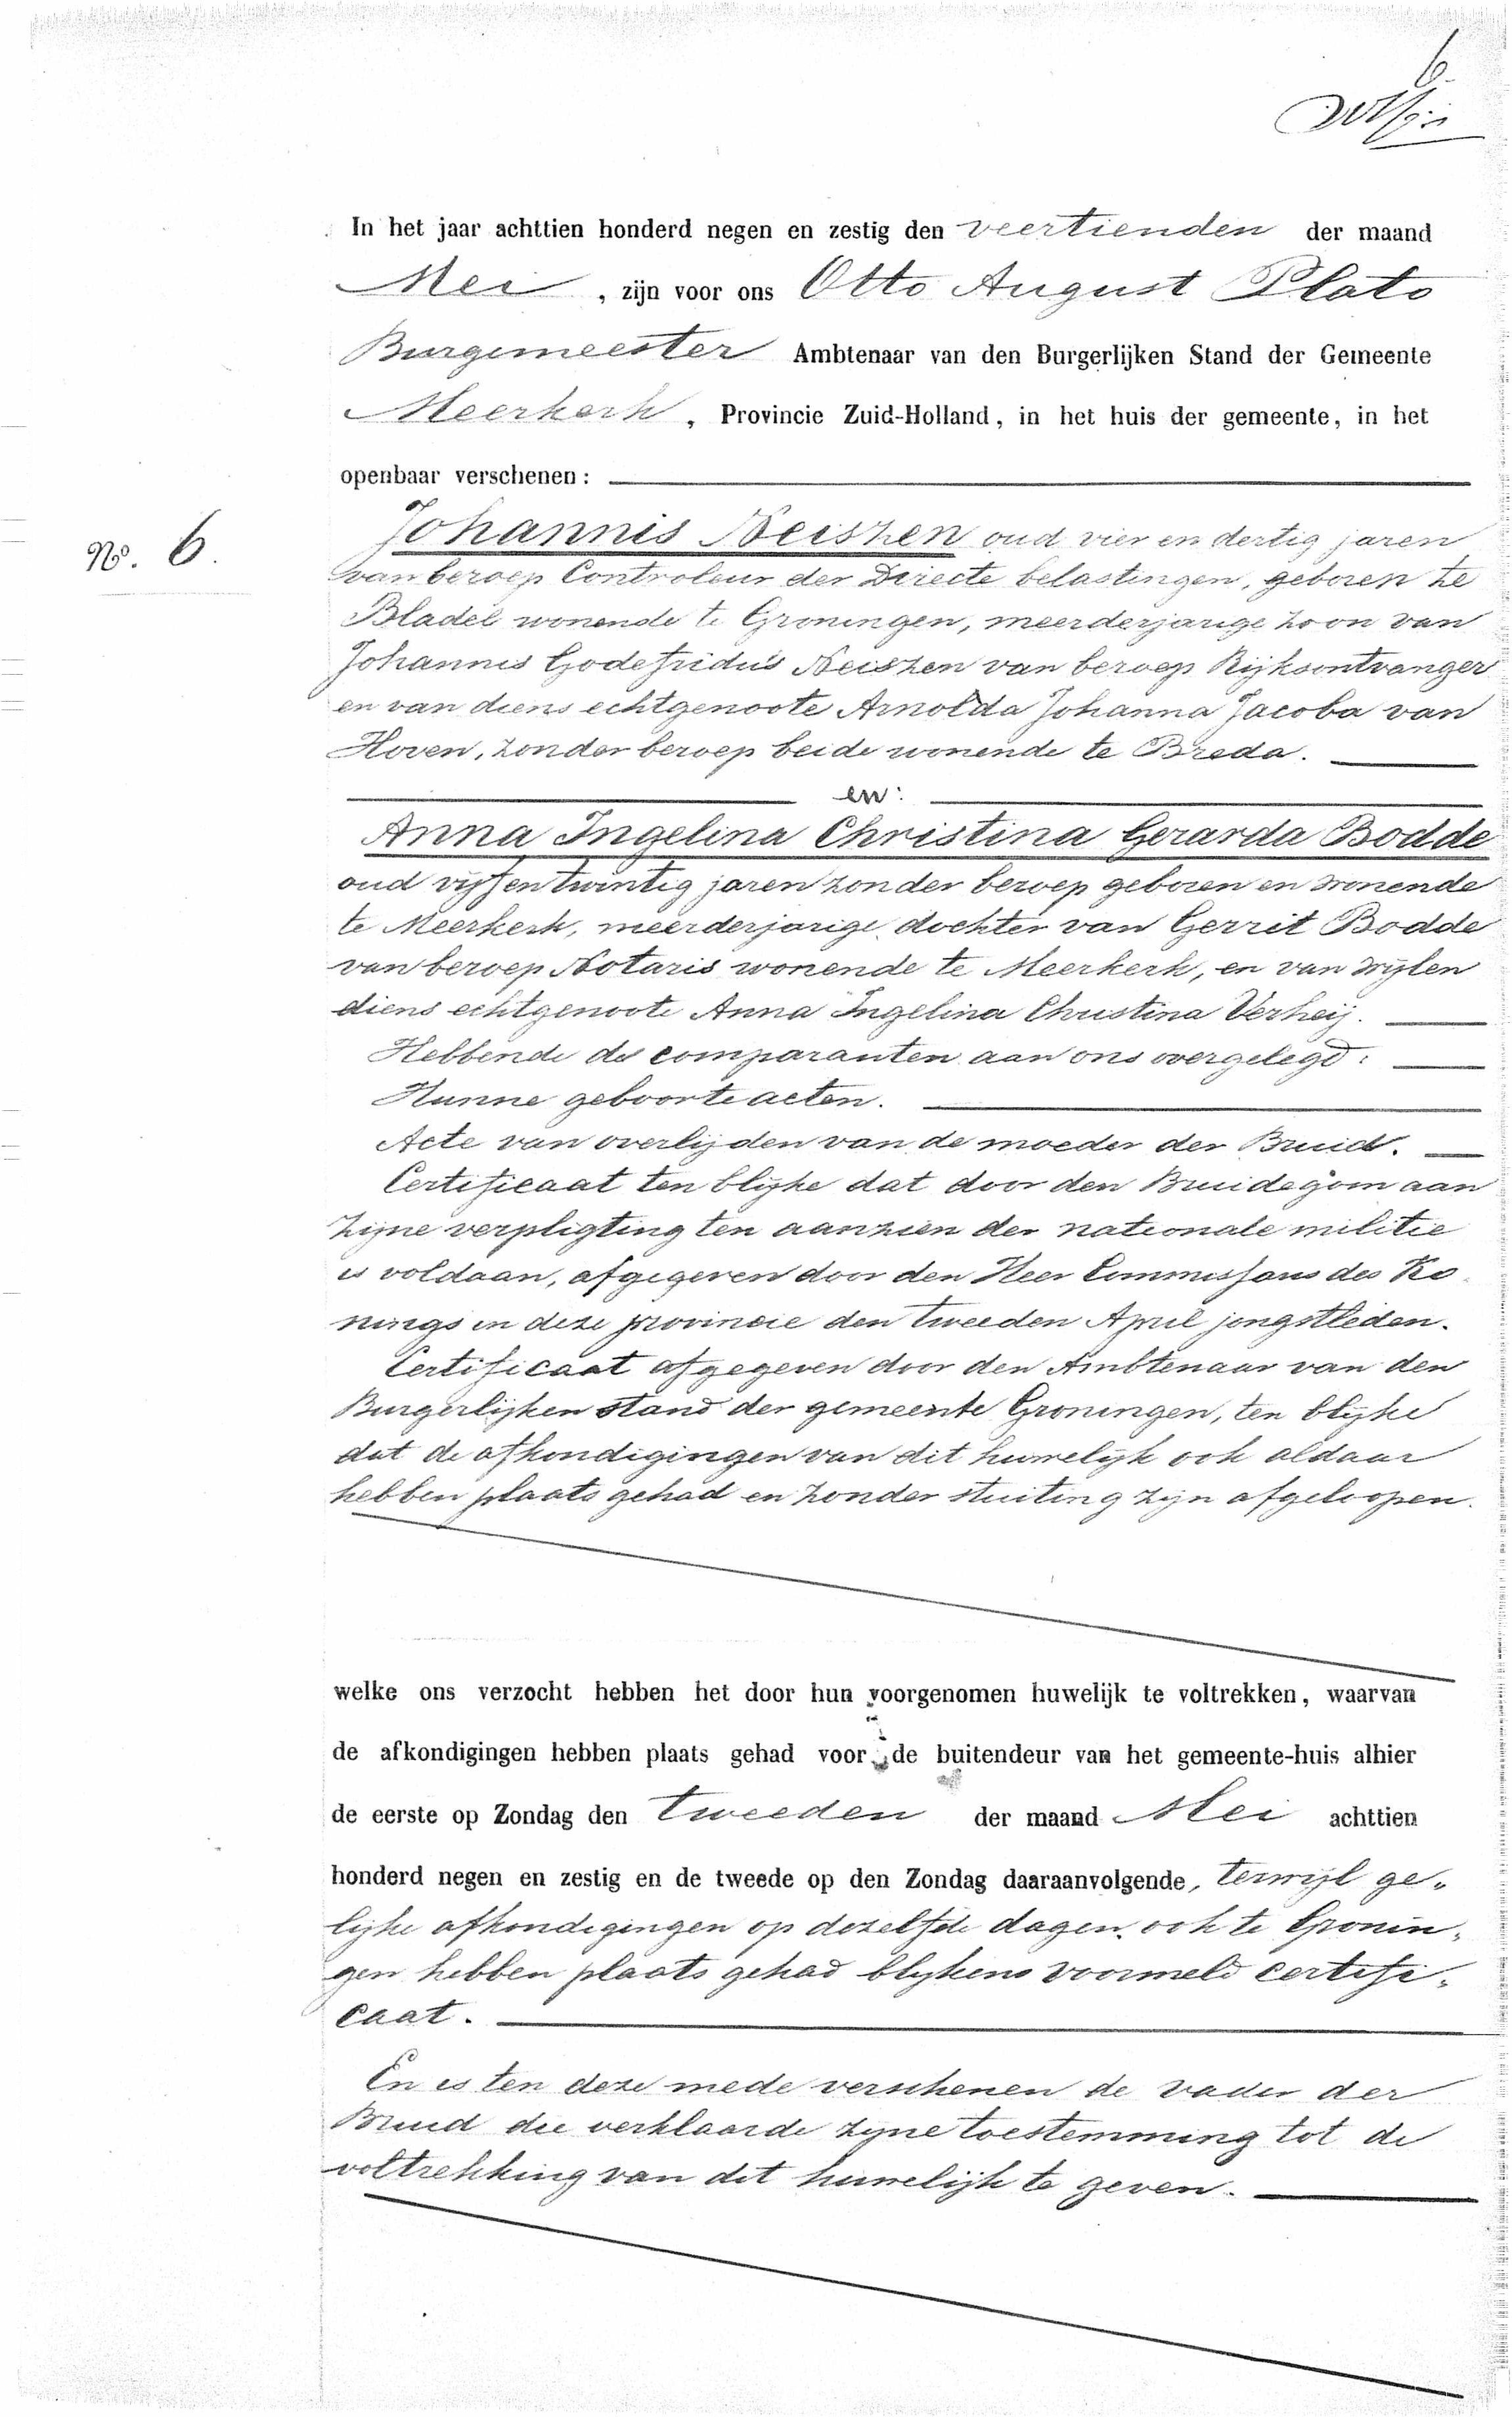 6.
In het jaar achttien honderd negen en zestig den veertienden der maand
Mei, zijn voor ons Otto August Plato
Burgemeester Ambtenaar van den Burgerlijken Stand der Gemeente
Meerkerk, Provincie Zuid-Holland, in het huis der gemeente, in het
openbaar verschenen:
No. 6.
Johannis Neiszen oud vier en dertig jaren
van beroep Controleur der Directe belastingen, geboren te
Bladel wonende te Groningen, meerderjarige zoon van
Johannis Godefridus Neiszen van beroep Rijksontvanger
en van diens echtgenoote Arnolda Johanna Jacoba van
Hoven, zonder beroep beide wonende te Breda.
en:
Anna Ingelina Christina Gerarda Bodde
oud vijfentwintig jaren zonder beroep geboren en wonende
te Meerkerk, meerderjarige dochter van Gerrit Bodde
van beroep Notaris wonende te Meerkerk, en van wijlen
diens echtgenoote Anna Ingelina Christina Verheij.
Hebbende de comparanten aan ons overgelegd:
Hunne geboorteacten.
Acte van overlijden van de moeder der Bruid.
Certificaat ten blijke dat door den Bruidegom aan
zijne verpligting ten aanzien der nationale militie
is voldaan, afgegeven door den Heer Commissaris des Ko-
nings in deze provincie den tweeden April jongstleden.
Certificaat afgegeven door den Ambtenaar van den
Burgerlijken stand der gemeente Groningen, ten blijke
dat de afkondigingen van dit huwelijk ook aldaar
hebben plaats gehad en zonder stuiting zijn afgeloopen.
welke ons verzocht hebben het door hun voorgenomen huwelijk te voltrekken, waarvan
de afkondigingen hebben plaats gehad voor de buitendeur van het gemeente-huis alhier
de eerste op Zondag den tweeden der maand Mei achttien
honderd negen en zestig en de tweede op den Zondag daaraanvolgende, terwijl ge-
lijke afkondigingen op dezelfde dagen ook te Gronin-
gen hebben plaats gehad blijkens voormeld certifi-
caat.
En is ten deze mede verschenen de vader der
Bruid die verklaarde zijne toestemming tot de
voltrekking van dit huwelijk te geven.